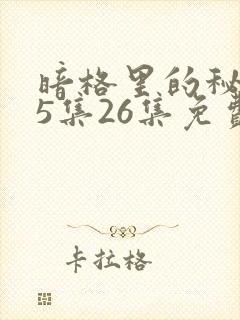 暗格里的秘
5集26集免费
卡拉格